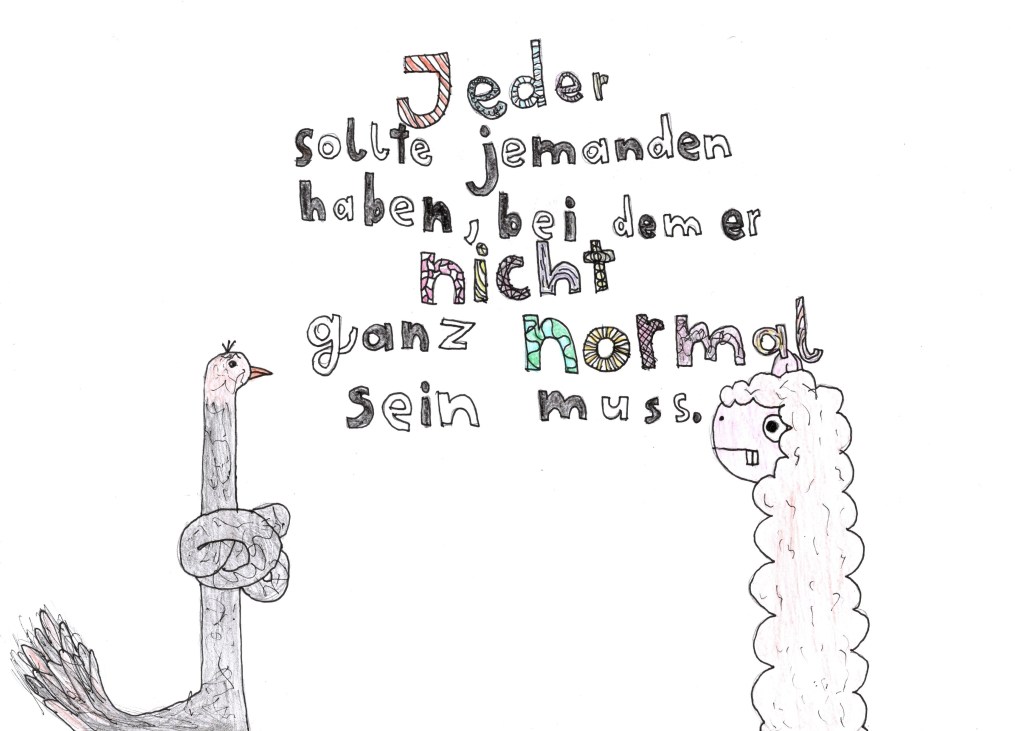 Jeder
sollte jemanden
haben, bei dem er
nicht
ganz normal
sein muss.